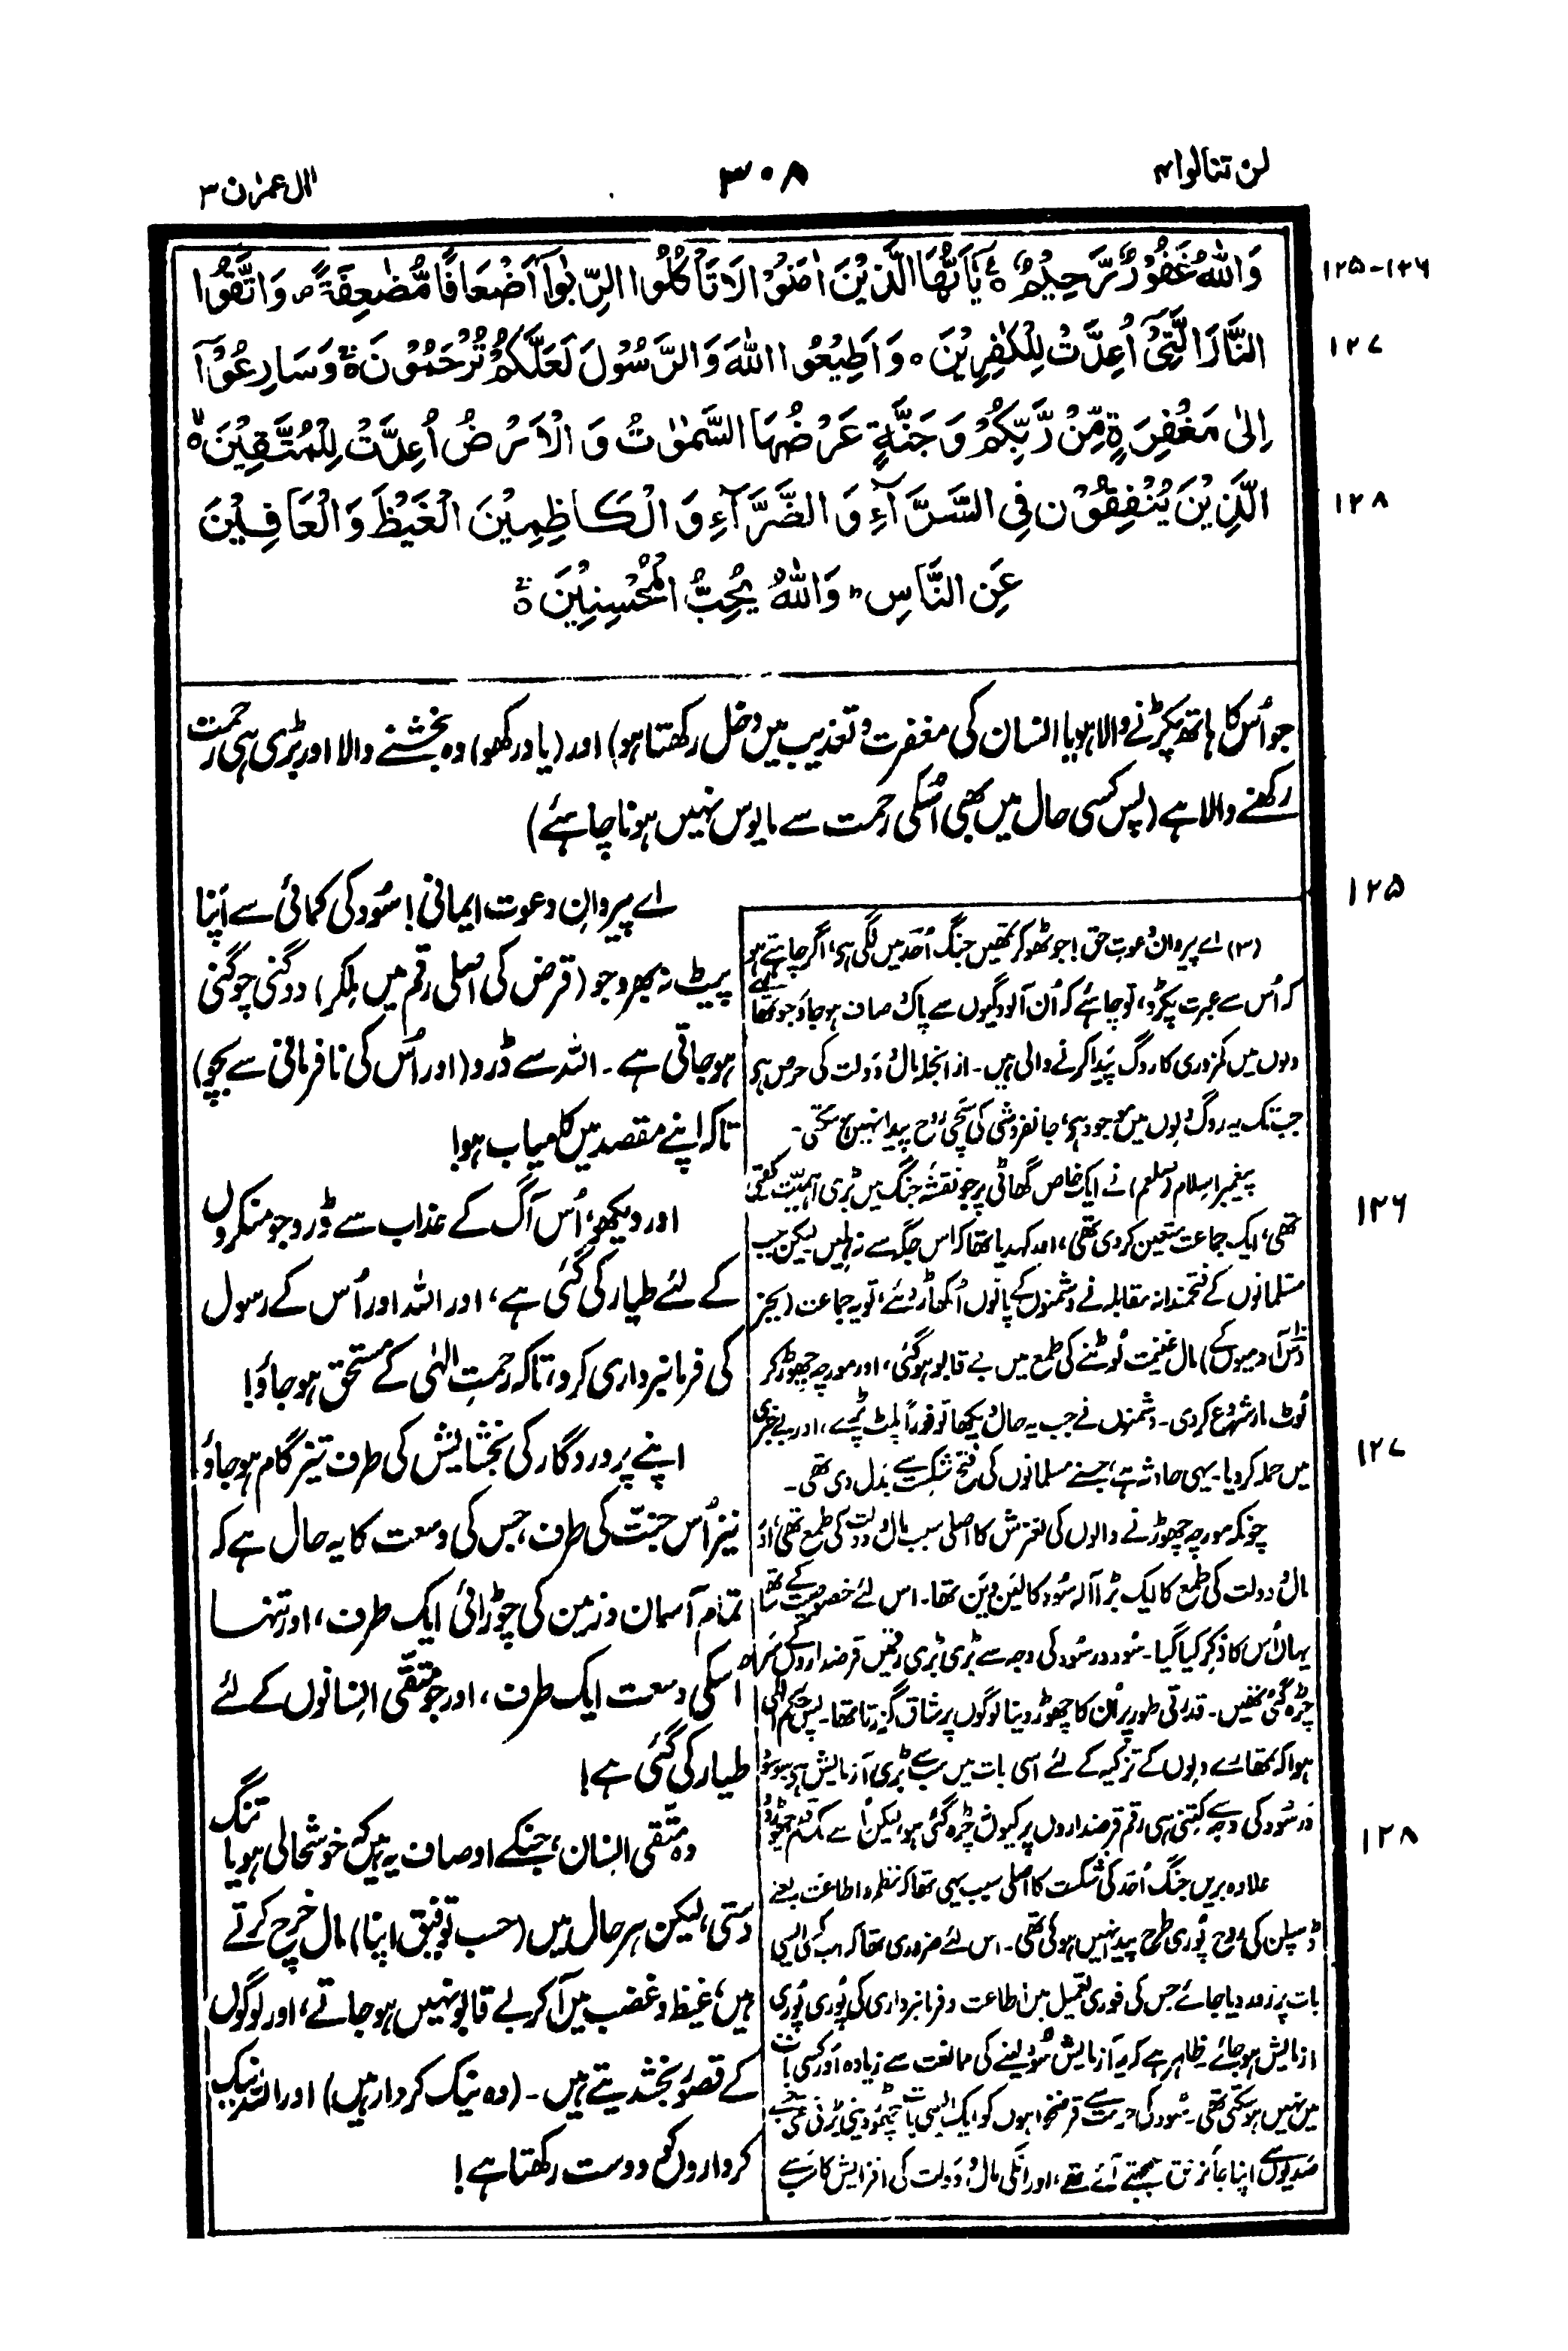 لن تنالوا ۴
۳۰۸
اٰل عمرٰن ۳
۱۲۵-۱۲۶
وَاللّٰهُ غَفُوْرٌ رَّحِيْمٌ ۝ يٰۤاَيُّهَا الَّذِيْنَ اٰمَنُوْا لَا تَاْكُلُوا الرِّبٰوٓا اَضْعَافًا مُّضٰعَفَةً ۪ وَاتَّقُوا
۱۲۷
النَّارَ الَّتِيْۤ اُعِدَّتْ لِلْكٰفِرِيْنَ ۝ وَاَطِيْعُوا اللّٰهَ وَالرَّسُوْلَ لَعَلَّكُمْ تُرْحَمُوْنَ ۝ وَسَارِعُوْۤا
اِلٰى مَغْفِرَةٍ مِّنْ رَّبِّكُمْ وَجَنَّةٍ عَرْضُهَا السَّمٰوٰتُ وَالْاَرْضُ اُعِدَّتْ لِلْمُتَّقِيْنَ ۝
۱۲۸
الَّذِيْنَ يُنْفِقُوْنَ فِى السَّرَّآءِ وَالضَّرَّآءِ وَالْكَاظِمِيْنَ الْغَيْظَ وَالْعَافِيْنَ
عَنِ النَّاسِ ؕ وَاللّٰهُ يُحِبُّ الْمُحْسِنِيْنَ ۝
جو اُس کا ہاتھ پکڑنے والا ہو یا انسان کی مغفرت و تعذیب میں دخل رکھتا ہو) اور (یاد رکھو) وہ بخشنے والا اور بڑی ہی رحمت
رکھنے والا ہے (پس کسی حال میں بھی اُسکی رحمت سے مایوس نہیں ہونا چاہئے)
۱۲۵
اے پیروانِ دعوت ایمانی! سُود کی کمائی سے اَپنا
پیٹ نہ بھرو جو (قرض کی اصلی رقم میں ملکر) دوگنی چوگنی
ہو جاتی ہے۔ اللہ سے ڈرو (اور اُس کی نافرمانی سے بچو)
تاکہ اپنے مقصد میں کامیاب ہو!
۱۲۶
اور دیکھو، اُس آگ کے عذاب سے ڈرو جو منکروں
کے لئے طیار کی گئی ہے، اور اللہ اور اُس کے رسول
کی فرمانبرداری کرو، تاکہ رحمتِ الٰہی کے مستحق ہو جاؤ!
۱۲۷
اپنے پروردگار کی بخشایش کی طرف تیز گام ہو جاؤ
نیز اُس جنّت کی طرف، جس کی وسعت کا یہ حال ہے کہ
تمام آسمان و زمین کی چوڑائی ایک طرف، اور تنہا
اسکی وسعت ایک طرف، اور جو متّقی انسانوں کے لئے
طیار کی گئی ہے!
۱۲۸
وہ متّقی انسان، جنکے اوصاف یہ ہیں کہ خوشحالی ہو یا تنگ
دستی، لیکن ہر حال میں (حسب توفیق اپنا) مال خرچ کرتے
ہیں، غیظ و غضب میں آکر بے قابو نہیں ہو جاتے، اور لوگوں
کے قصور بخشدیتے ہیں۔ (وہ نیک کردار ہیں) اور اللہ نیک
کرداروں کو دوست رکھتا ہے!
(۳) اے پیروانِ دعوتِ حق! جو ٹھوکر تمھیں جنگ اُحد میں لگی ہے، اگر چاہتے ہو
کہ اُس سے عبرت پکڑو، تو چاہئے کہ اُن آلودگیوں سے پاک صاف ہو جاؤ جو تمھارے
دلوں میں کمزوری کا روگ پیدا کرنے والی ہیں۔ ازانجملہ مال و دولت کی حرص ہے
جب تک یہ روگ دلوں میں موجود ہے، جانفروشی کی سچّی رُوح پیدا نہیں ہو سکتی۔
پیغمبر اسلام (صلعم) نے ایک خاص گھاٹی پر جو نقشۂ جنگ میں بڑی اہمیّت رکھتی
تھی، ایک جماعت متعین کر دی تھی، اور کہدیا تھا کہ اس جگہ سے نہ ہلیں لیکن جب
مسلمانوں کے فتحمندانہ مقابلہ نے دشمنوں کے پانوں اُکھاڑ دئے، تو یہ جماعت (بجز
دس آدمیوں کے) مال غنیمت لُوٹنے کی طمع میں بے قابو ہو گئی، اور مورچہ چھوڑ کر
لُوٹ مار شروع کر دی۔ دشمنوں نے جب یہ حال دیکھا تو فوراً پلٹ پڑے، اور بے خبری
میں حملہ کر دیا۔ یہی حادثہ ہے، جسنے مسلمانوں کی فتح شکست سے بدل دی تھی۔
چونکہ مورچہ چھوڑنے والوں کی لغزش کا اصلی سبب مال و دولت کی طمع تھی، اور
مال و دولت کی طمع کا ایک بڑا آلہ سُود کا لین دین تھا۔ اس لئے خصوصیت کے ساتھ
یہاں اُس کا ذکر کیا گیا۔ سُود در سُود کی وجہ سے بڑی بڑی رقمیں قرضداروں کے سر
چڑھ گئی تھیں۔ قدرتی طور پر اُن کا چھوڑ دینا لوگوں پر شاق گزرتا تھا۔ پس حکم الٰہی
ہوا کہ تمھارے دلوں کے تزکیہ کے لئے اسی بات میں سب سے بڑی آزمایش ہے، سود
در سُود کی وجہ سے کتنی ہی رقم قرضداروں پر کیوں نہ چڑھ گئی ہو لیکن اُسے یک قلم چھوڑ دو
علاوہ بریں جنگ اُحد کی شکست کا اصلی سبب یہی تھا کہ نظم و اطاعت یعنے
ڈسپلن کی رُوح پوری طرح پیدا نہیں ہوئی تھی۔ اس لئے ضروری تھا کہ اب کسی ایسی
بات پر زور دیا جائے جس کی فوری تعمیل میں اطاعت و فرمانبرداری کی پُوری پُوری
ازمایش ہو جائے ظاہر ہے کہ یہ آزمایش سُود لینے کی ممانعت سے زیادہ اور کسی بات
میں نہیں ہو سکتی تھی۔ سُود کی حرمت سے قرضخواہوں کو ایک ایسی بات چھوڑ دینی پڑتی تھی جسے
صدیوں سے اپنا جائز حق سمجھتے آئے تھے، اور انکی مال و دولت کی افزایش کا سب سے